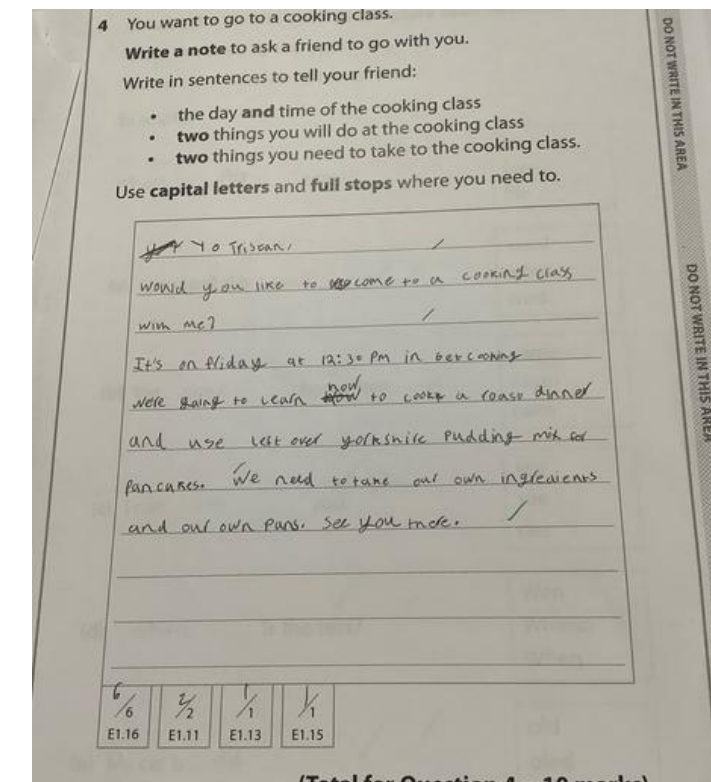 4 You want to go to a cooking class.
Write a note to ask a friend to go with you.
Write in sentences to tell your friend:
• the day and time of the cooking class
• two things you will do at the cooking class
• two things you need to take to the cooking class.
Use capital letters and full stops where you need to.
Yo Triscan,
would you like to come to a cooking class
with me?
It's on friday at 12:30 PM in cooking
were going to learn how to cook a roast dinner
and use left over yorkshire pudding mix for
pancakes. We need to take our own ingredients
and our own pans. See you there.
6/6 2/2 1/1 1/1
E1.16 E1.11 E1.13 E1.15
(Total for Question 4 = 10 marks)
DO NOT WRITE IN THIS AREA
DO NOT WRITE IN THIS AREA